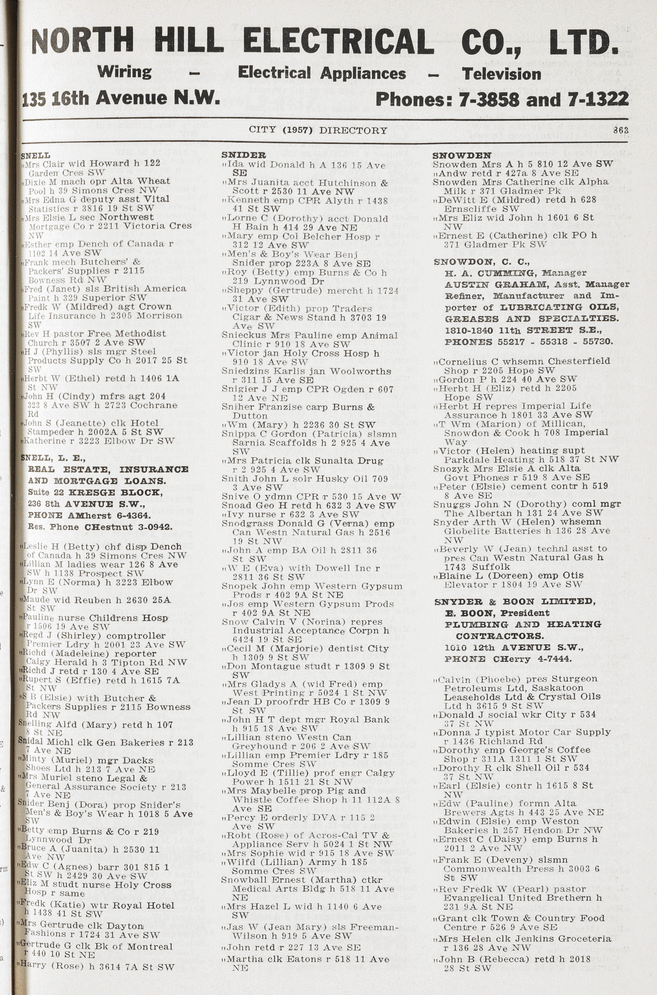 NORTH HILL ELECTRICAL CO., LTD.
Wiring – Electrical Appliances – Television
135 16th Avenue N.W. Phones: 7-3858 and 7-1322
CITY (1957) DIRECTORY 863
SNELL
„Mrs Clair wid Howard h 122
Garden Cres SW
„Dixie M mach opr Alta Wheat
Pool h 39 Simons Cres NW
„Mrs Edna G deputy asst Vital
Statistics r 3816 19 St SW
„Mrs Elsie L sec Northwest
Mortgage Co r 2211 Victoria Cres
NW
„Esther emp Dench of Canada r
1102 14 Ave SW
„Frank mech Butchers' &
Packers' Supplies r 2115
Bowness Rd NW
„Fred (Janet) sls British America
Paint h 329 Superior SW
„Fredk W (Mildred) agt Crown
Life Insurance h 2305 Morrison
SW
„Rev H pastor Free Methodist
Church r 3507 2 Ave SW
„H J (Phyllis) sls mgr Steel
Products Supply Co h 2017 25 St
SW
„Herbt W (Ethel) retd h 1406 1A
St NW
„John H (Cindy) mfrs agt 204
323 8 Ave SW h 2723 Cochrane
Rd
„John S (Jeanette) clk Hotel
Stampeder h 2002A 5 St SW
„Katherine r 3223 Elbow Dr SW
SNELL, L. E.,
REAL ESTATE, INSURANCE
AND MORTGAGE LOANS.
Suite 22 KRESGE BLOCK,
236 8th AVENUE S.W.,
PHONE AMherst 6-4364.
Res. Phone CHestnut 3-0942.
„Leslie H (Betty) chf disp Dench
of Canada h 39 Simons Cres NW
„Lillian M ladies wear 126 8 Ave
SW h 1138 Prospect SW
„Lynn E (Norma) h 3223 Elbow
Dr SW
„Maude wid Reuben h 2630 25A
St SW
„Pauline nurse Childrens Hosp
r 1506 19 Ave SW
„Regd J (Shirley) comptroller
Premier Ldry h 2001 23 Ave SW
„Richd (Madeleine) reporter
Calgy Herald h 3 Tipton Rd NW
„Richd J retd r 130 4 Ave SE
„Rupert S (Effie) retd h 1615 7A
St NW
„S B (Elsie) with Butcher &
Packers Supplies r 2115 Bowness
Rd NW
Snelling Alfd (Mary) retd h 107
8 St NE
Snidal Michl clk Gen Bakeries r 213
7 Ave NE
„Minty (Muriel) mgr Dacks
Shoes Ltd h 213 7 Ave NE
„Mrs Muriel steno Legal &
General Assurance Society r 213
7 Ave NE
Snider Benj (Dora) prop Snider's
Men's & Boy's Wear h 1018 5 Ave
SW
„Betty emp Burns & Co r 219
Lynnwood Dr
„Bruce A (Juanita) h 2530 11
Ave NW
„Edw C (Agnes) barr 301 815 1
St SW h 2429 30 Ave SW
„Eliz M studt nurse Holy Cross
Hosp r same
„Fredk (Katie) wtr Royal Hotel
h 1438 41 St SW
„Mrs Gertrude clk Dayton
Fashions r 1724 31 Ave SW
„Gertrude G clk Bk of Montreal
r 440 10 St NE
„Harry (Rose) h 3614 7A St SW
SNIDER
„Ida wid Donald h A 136 15 Ave
SE
„Mrs Juanita acct Hutchinson &
Scott r 2530 11 Ave NW
„Kenneth emp CPR Alyth r 1438
41 St SW
„Lorne C (Dorothy) acct Donald
H Bain h 414 29 Ave NE
„Mary emp Col Belcher Hosp r
312 12 Ave SW
„Men's & Boy's Wear Benj
Snider prop 223A 8 Ave SE
„Roy (Betty) emp Burns & Co h
219 Lynnwood Dr
„Sheppy (Gertrude) mercht h 1724
31 Ave SW
„Victor (Edith) prop Traders
Cigar & News Stand h 3703 19
Ave SW
Snieckus Mrs Pauline emp Animal
Clinic r 910 18 Ave SW
„Victor jan Holy Cross Hosp h
910 18 Ave SW
Sniedzins Karlis jan Woolworths
r 311 15 Ave SE
Snigier J J emp CPR Ogden r 607
12 Ave NE
Sniher Franzise carp Burns &
Dutton
„Wm (Mary) h 2236 30 St SW
Snippa C Gordon (Patricia) slsmn
Sarnia Scaffolds h 2 925 4 Ave
SW
„Mrs Patricia clk Sunalta Drug
r 2 925 4 Ave SW
Snith John L solr Husky Oil 709
3 Ave SW
Snive O ydmn CPR r 530 15 Ave W
Snoad Geo H retd h 632 3 Ave SW
„Ivy nurse r 632 3 Ave SW
Snodgrass Donald G (Verna) emp
Can Westn Natural Gas h 2516
19 St NW
„John A emp BA Oil h 2811 36
St SW
„W E (Eva) with Dowell Inc r
2811 36 St SW
Snopek John emp Western Gypsum
Prods r 402 9A St NE
„Jos emp Western Gypsum Prods
r 402 9A St NE
Snow Calvin V (Norina) repres
Industrial Acceptance Corpn h
6424 19 St SE
„Cecil M (Marjorie) dentist City
h 1309 9 St SW
„Don Montague studt r 1309 9 St
SW
„Mrs Gladys A (wid Fred) emp
West Printing r 5024 1 St NW
„Jean D proofrdr HB Co r 1309 9
St SW
„John H T dept mgr Royal Bank
h 915 18 Ave SW
„Lillian steno Westn Can
Greyhound r 206 2 Ave SW
„Lillian emp Premier Ldry r 185
Somme Cres SW
„Lloyd E (Tillie) prof engr Calgy
Power h 1511 21 St NW
„Mrs Maybelle prop Pig and
Whistle Coffee Shop h 11 112A 8
Ave SE
„Percy E orderly DVA r 115 2
Ave SW
„Robt (Rose) of Acros-Cal TV &
Appliance Serv h 5024 1 St NW
„Mrs Sophie wid r 915 18 Ave SW
„Wilfd (Lillian) Army h 185
Somme Cres SW
Snowball Ernest (Martha) ctkr
Medical Arts Bldg h 518 11 Ave
NE
„Mrs Hazel L wid h 1140 6 Ave
SW
„Jas W (Jean Mary) sls Freeman-
Wilson h 919 5 Ave SW
„John retd r 227 13 Ave SE
„Martha clk Eatons r 518 11 Ave
NE
SNOWDEN
Snowden Mrs A h 5 810 12 Ave SW
„Andw retd r 427a 8 Ave SE
Snowden Mrs Catherine clk Alpha
Milk r 371 Gladmer Pk
„DeWitt E (Mildred) retd h 628
Ernscliffe SW
„Mrs Eliz wid John h 1601 6 St
NW
„Ernest E (Catherine) clk PO h
371 Gladmer Pk SW
SNOWDON, C. C.,
H. A. CUMMING, Manager
AUSTIN GRAHAM, Asst. Manager
Refiner, Manufacturer and Im-
porter of LUBRICATING OILS,
GREASES AND SPECIALTIES.
1810-1840 11th STREET S.E.,
PHONES 55217 - 55318 - 55730.
„Cornelius C whsemn Chesterfield
Shop r 2205 Hope SW
„Gordon P h 224 40 Ave SW
„Herbt H (Eliz) retd h 2205
Hope SW
„Herbt H repres Imperial Life
Assurance h 1801 33 Ave SW
„T Wm (Marion) of Millican,
Snowdon & Cook h 708 Imperial
Way
„Victor (Helen) heating supt
Parkdale Heating h 518 37 St NW
Snozyk Mrs Elsie A clk Alta
Govt Phones r 519 8 Ave SE
„Peter (Elsie) cement contr h 519
8 Ave SE
Snuggs John N (Dorothy) coml mgr
The Albertan h 131 24 Ave SW
Snyder Arth W (Helen) whsemn
Globelite Batteries h 136 28 Ave
NW
„Beverly W (Jean) technl asst to
pres Can Westn Natural Gas h
1743 Suffolk
„Blaine L (Doreen) emp Otis
Elevator r 1804 19 Ave SW
SNYDER & BOON LIMITED,
E. BOON, President
PLUMBING AND HEATING
CONTRACTORS.
1010 12th AVENUE S.W.,
PHONE CHerry 4-7444.
„Calvin (Phoebe) pres Sturgeon
Petroleums Ltd, Saskatoon
Leaseholds Ltd & Crystal Oils
Ltd h 3615 9 St SW
„Donald J social wkr City r 534
37 St NW
„Donna J typist Motor Car Supply
r 1436 Richland Rd
„Dorothy emp George's Coffee
Shop r 311A 1311 1 St SW
„Dorothy R clk Shell Oil r 534
37 St NW
„Earl (Elsie) contr h 1615 8 St
NW
„Edw (Pauline) formn Alta
Brewers Agts h 443 25 Ave NW
„Edwin (Elsie) emp Weston
Bakeries h 257 Hendon Dr NW
„Ernest C (Daisy) emp Burns h
2011 2 Ave NW
„Frank E (Deveny) slsmn
Commonwealth Press h 3003 6
St SW
„Rev Fredk W (Pearl) pastor
Evangelical United Brethern h
231 9A St NE
„Grant clk Town & Country Food
Centre r 526 9 Ave SE
„Mrs Helen clk Jenkins Groceteria
r 136 28 Ave NW
„John B (Rebecca) retd h 2018
28 St SW